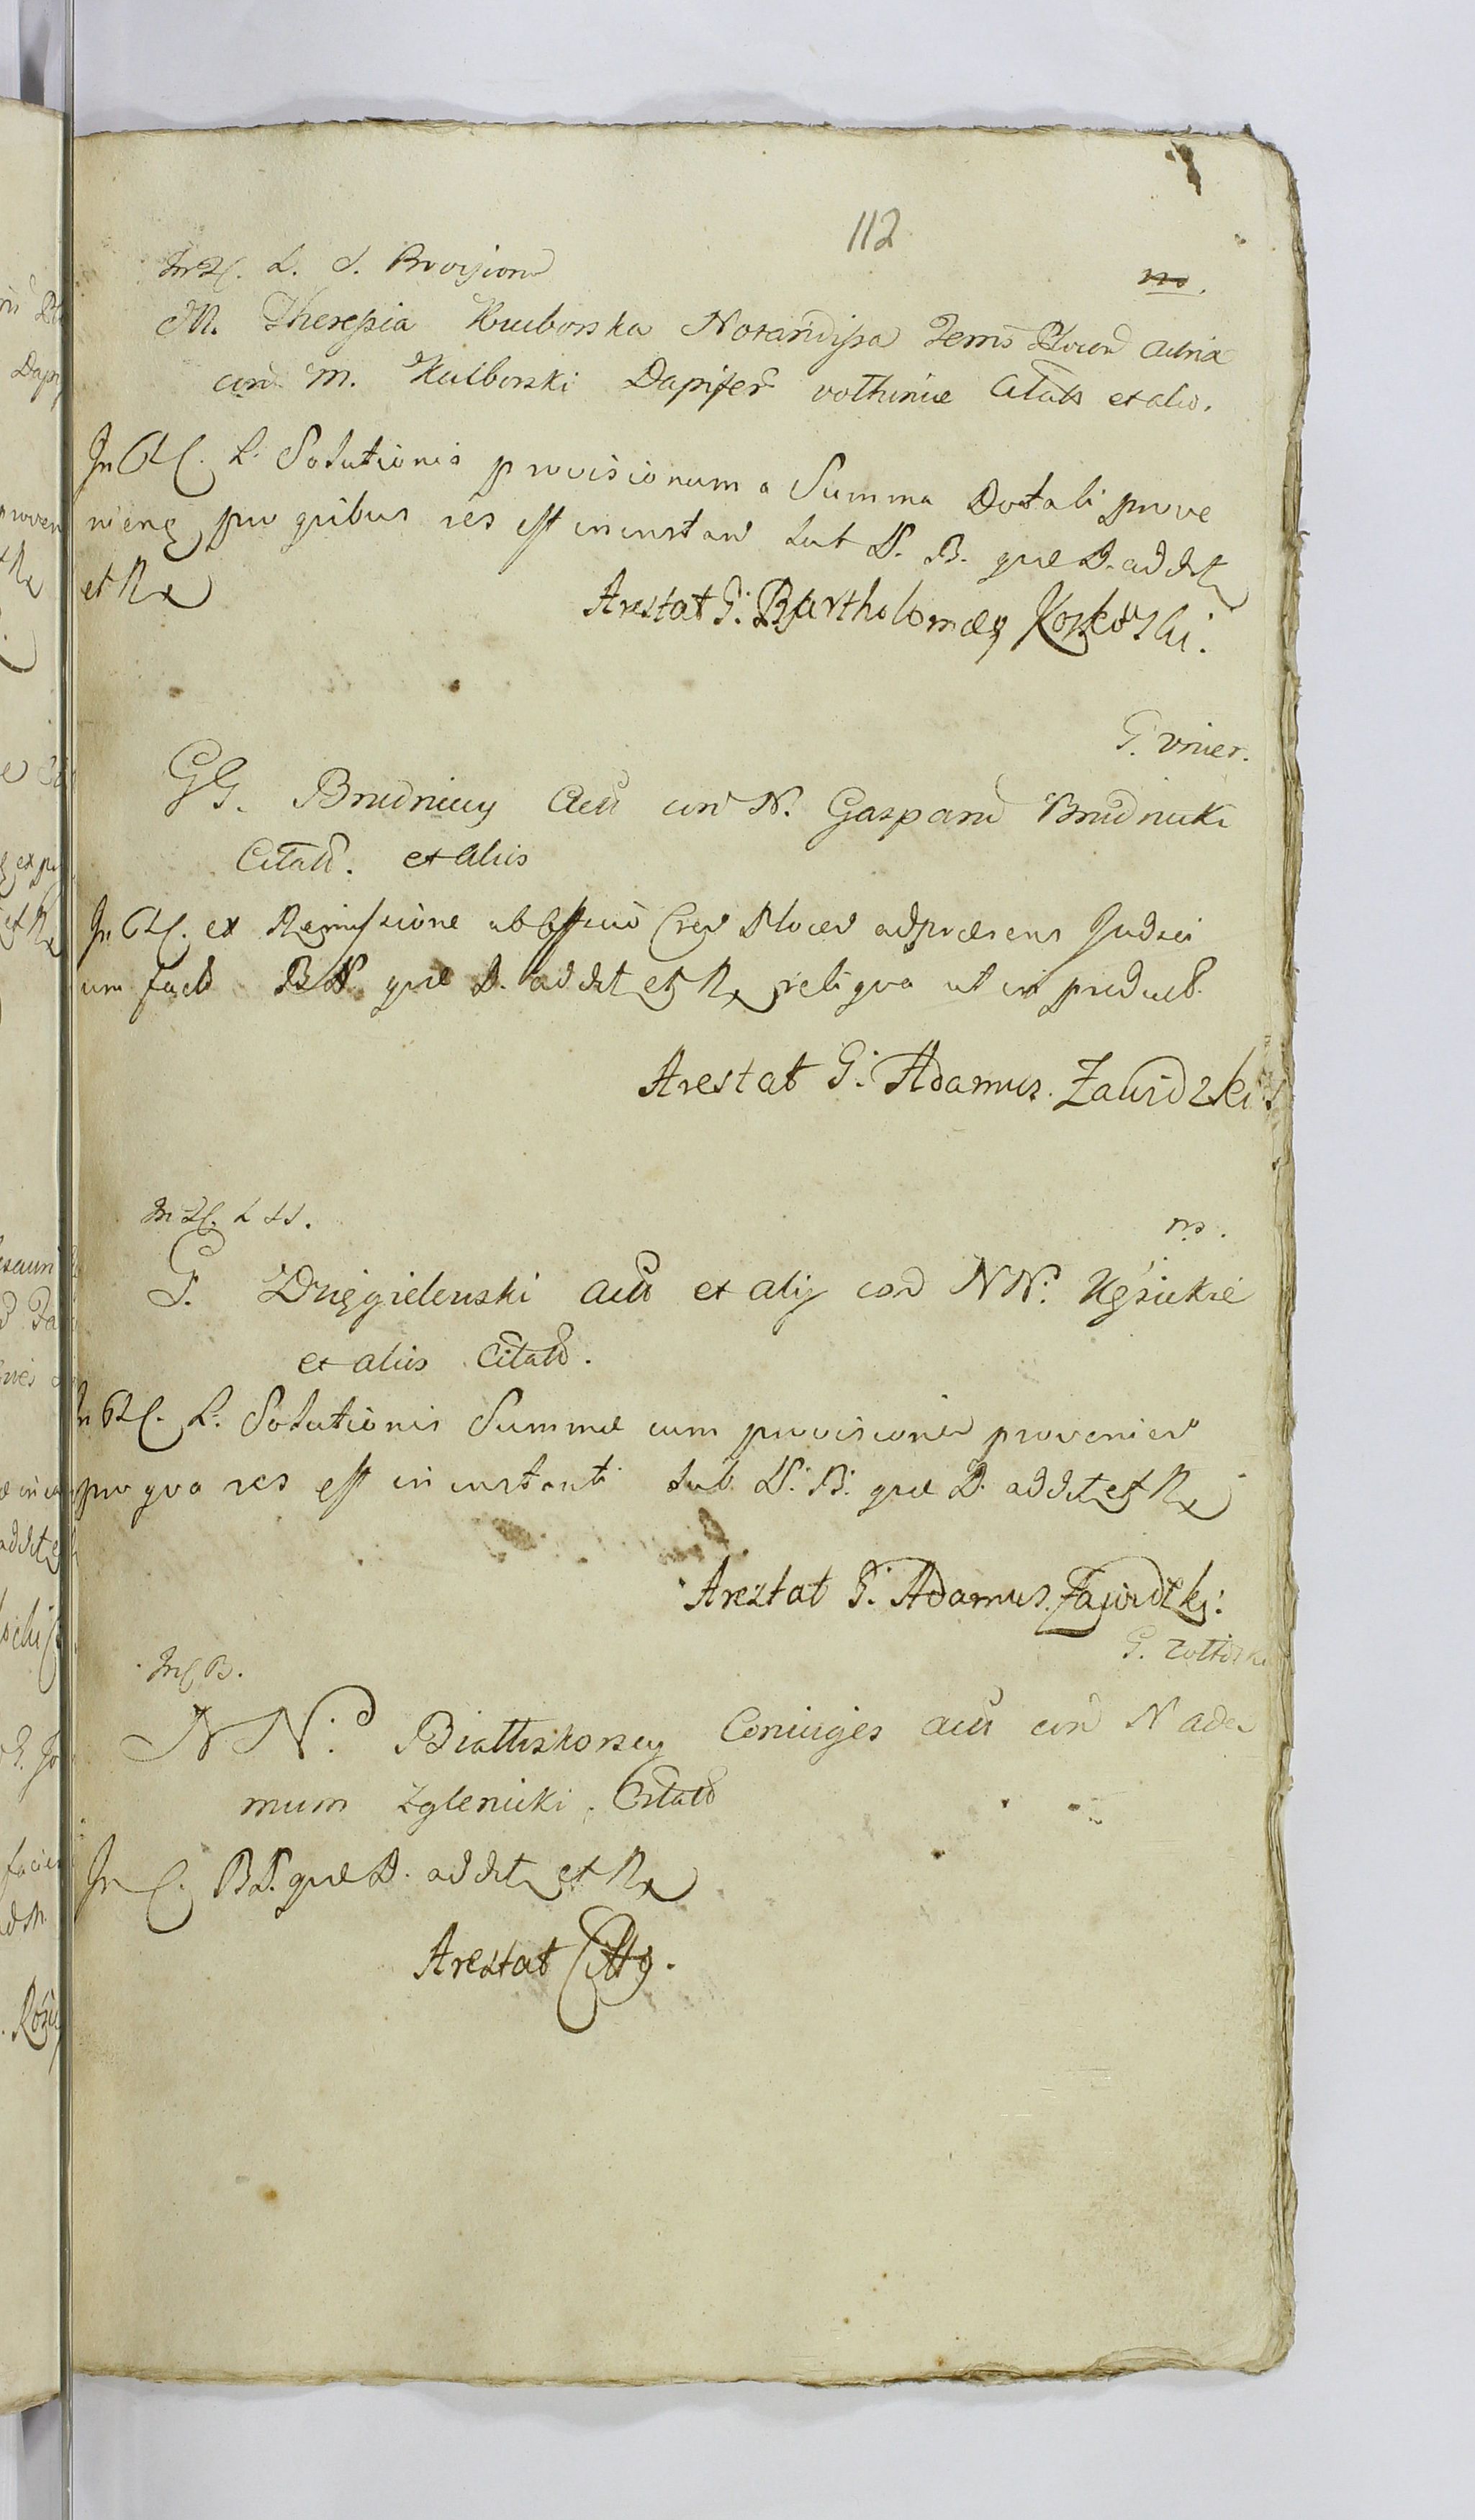 112
L. S. Provision
no.
M. Theressia Kuuborska Notarissa Terris Plocen actrix
con M. Kuiborski Dapifer vothiniæ Citat et alio.
In L. Solutionis provisionum a Summa Dotali prove
nieng pro quibus res est in instan sub P. B. quæ D. addt
et Rx
Arestat G. Bartholomæg Koskowski.
G. vnier.
GG. Brudniccy Act con N. Gaspard Brudnicki
Citatt. et aliis
In ex Remissione ab officio Cren Plocen ad præsens Judici
um fact BP quæ D. addt et Rx reliqva ut in præduct.
Arestat G. Adamus Zawidzki
In L. SS.
no.
G. Dzięgielewski Act et alij con NN. Kęsickie
et aliis Citatt.
L. Solutionis Summæ cum provisione provenien
pro qva res est in instanti sub P. B. quæ D. addt et Rx
Arestat G. Adamus Zawidzki.
G. Zottowski
In B.
NN. Biattiskorscy Coniuges act con N Ada
mum Zglenicki Citatt
In C. BP. quæ D. addt et Rx
Arestat Cittg.